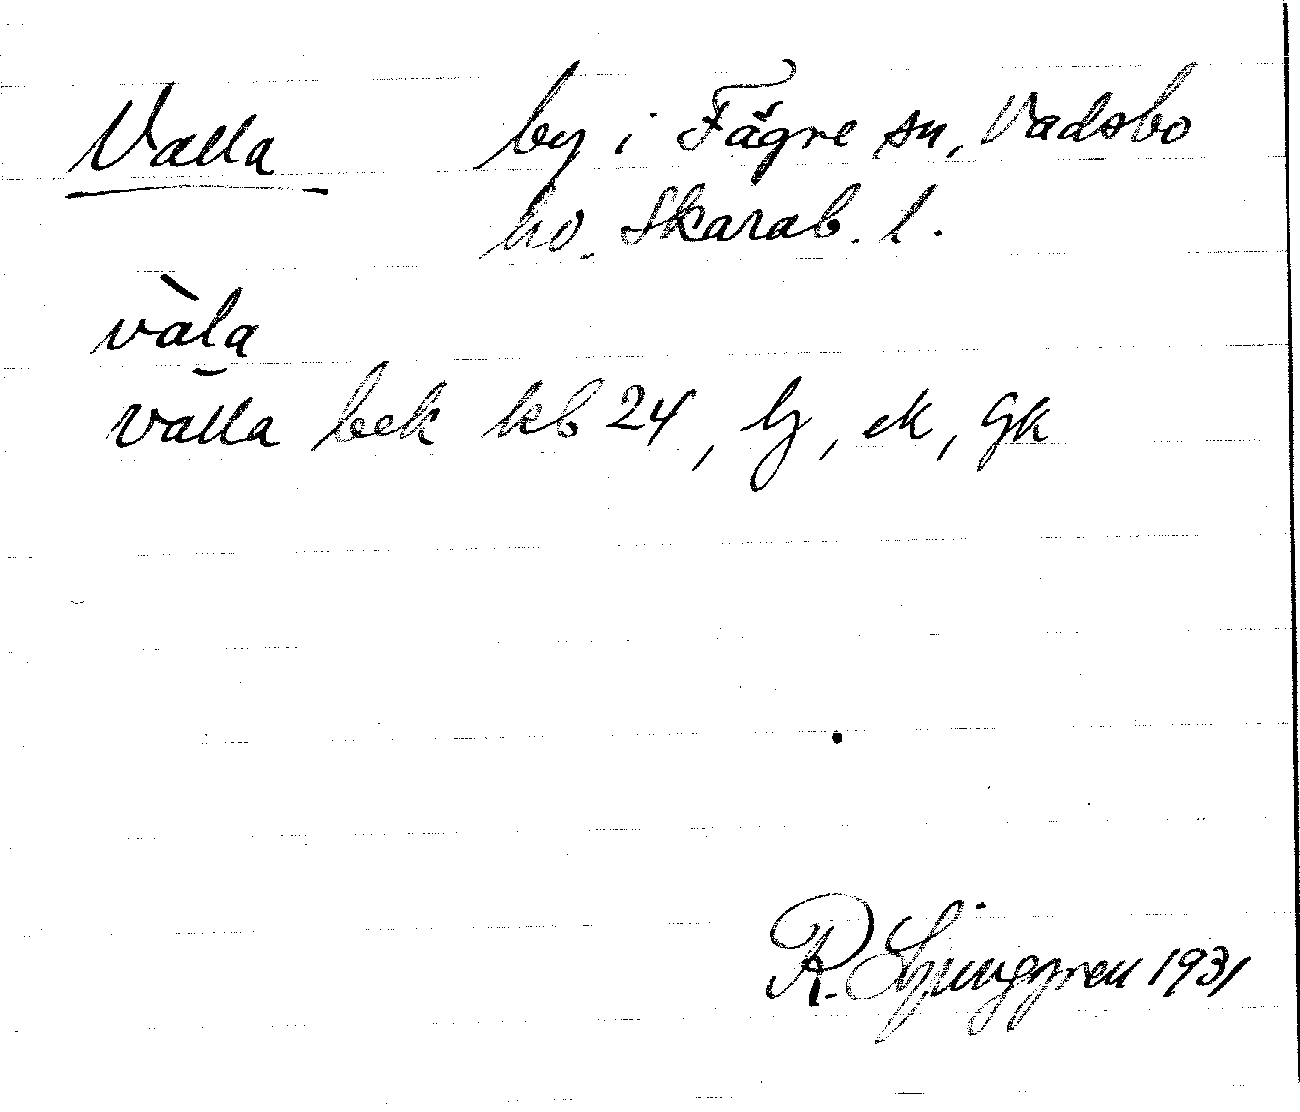 Valla by i Fägre sn, Vadsbo
hd. Skarab. l.
vàla
valla bek kb 24, lj, ek, gk
R. Ljunggren 1931